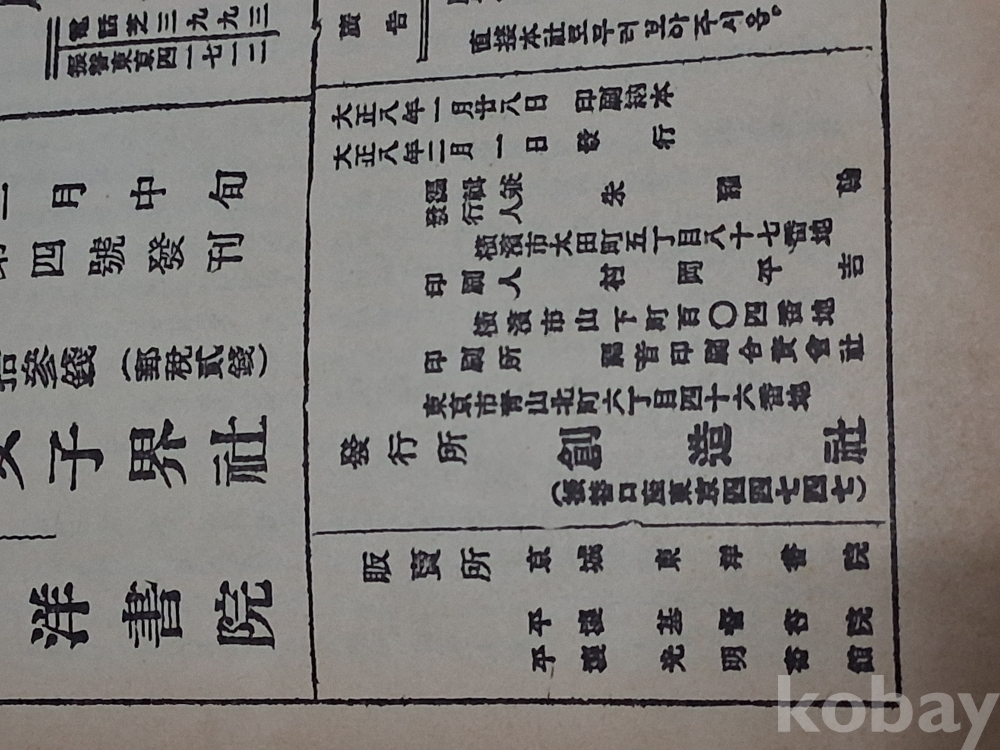 電話芝三九九三
振替東京四一七一二
月中旬
四號發刊
拾參錢(郵稅貳錢)
子界社
洋書院
廣告
直接本社로무러보아주시옵。
大正八年一月廿八日 印刷納本
大正八年二月一日 發行
編輯兼發行人 朱耀翰
橫濱市太田町五丁目八十七番地
印刷人 村岡平吉
橫濱市山下町百〇四番地
印刷所 福音印刷合資會社
東京市靑山北町六丁目四十六番地
發行所 創造社
(振替口座東京四四七四七)
販賣所 京城 東洋書院
平壤 基督書院
平壤 光明書館
kobay